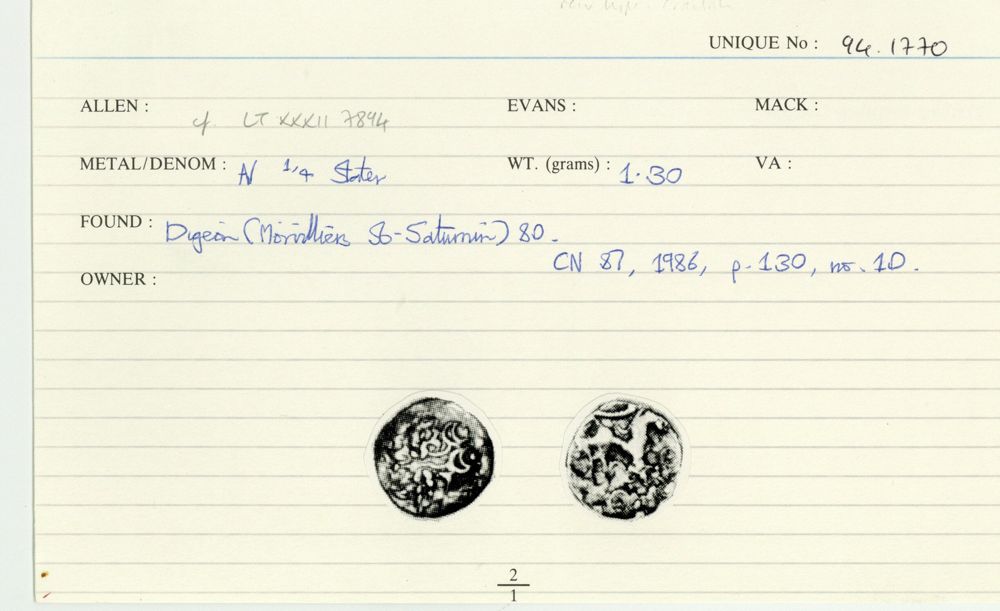 UNIQUE No : 94.1770
ALLEN : cf. LT XXXII 7894 EVANS : MACK :
METAL/DENOM : N 1/4 Stater WT. (grams) : 1.30 VA :
FOUND : Digeon (Morvilliers St-Saturnin) 80.
CN 87, 1986, p.130, no. 10.
OWNER :
2
1